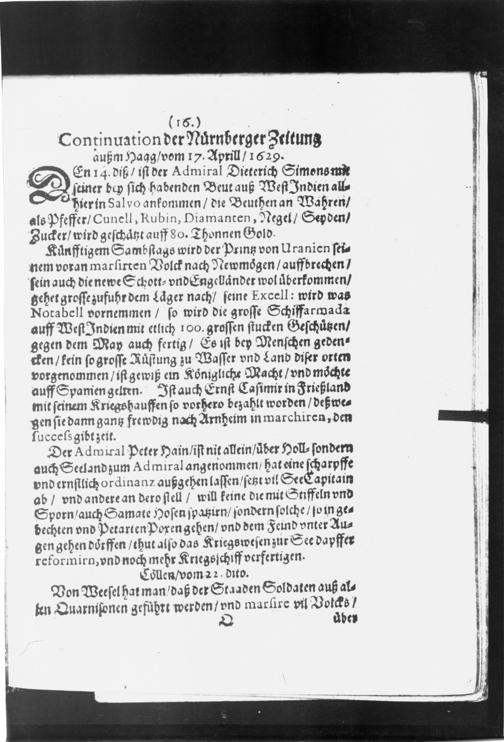 (16.)
Continuation der Nürnberger Zeitung
außm Haag/vom 17. Aprill/1629.
DEn 14. diß/ist der Admiral Dieterich Simons mit
seiner bey sich habenden Beut auß West Indien all-
hier in Salvo ankommen/die Beuthen an Wahren/
als Pfeffer/Cunell, Rubin, Diamanten, Negel/Seyden/
Zucker/wird geschätzt auff 80. Thonnen Gold.
Künfftigem Sambstags wird der Printz von Uranien sei-
nem voran marsirten Volck nach Newmögen/auffbrechen/
sein auch die newe Schott- vnd Engelländer wol überkommen/
gehet grosse zufuhr dem Läger nach/ seine Excell: wird was
Notabell vornemmen/ so wird die grosse Schiffarmada
auff West Indien mit etlich 100. grossen stucken Geschützen/
gegen dem May auch fertig/ Es ist bey Menschen geden-
cken/kein so grosse Rüstung zu Wasser vnd Land diser orten
vorgenommen/ist gewiß ein Königliche Macht/vnd möchte
auff Spanien gelten. Ist auch Ernst Casimir in Frießland
mit seinem Kriegshauffen so vorhero bezahlt worden/deßwe-
gen sie dann gantz frewdig nach Arnheim in marchiren, den
success gibt zeit.
Der Admiral Peter Hain/ist nit allein/über Holl- sondern
auch Seeland zum Admiral angenommen/hat eine scharpffe
vnd ernstlich ordinanz außgehen lassen/setzt vil See Capitain
ab/ vnd andere an dero stell/ will keine die mit Stiffeln vnd
Sporn/auch Samate Hosen spatzirn/sondern solche/so in ge-
bechten vnd Petarien Poxen gehen/vnd dem Feind vnter Au-
gen gehen dörffen/thut also das Kriegswesen zur See dapffer
reformirn, vnd noch mehr Kriegsschiff verfertigen.
Cöllen/vom 22. dito.
Von Weesel hat man/daß der Staaden Soldaten auß al-
len Quarnisonen geführt werden/vnd marsire vil Volcks/
Q über